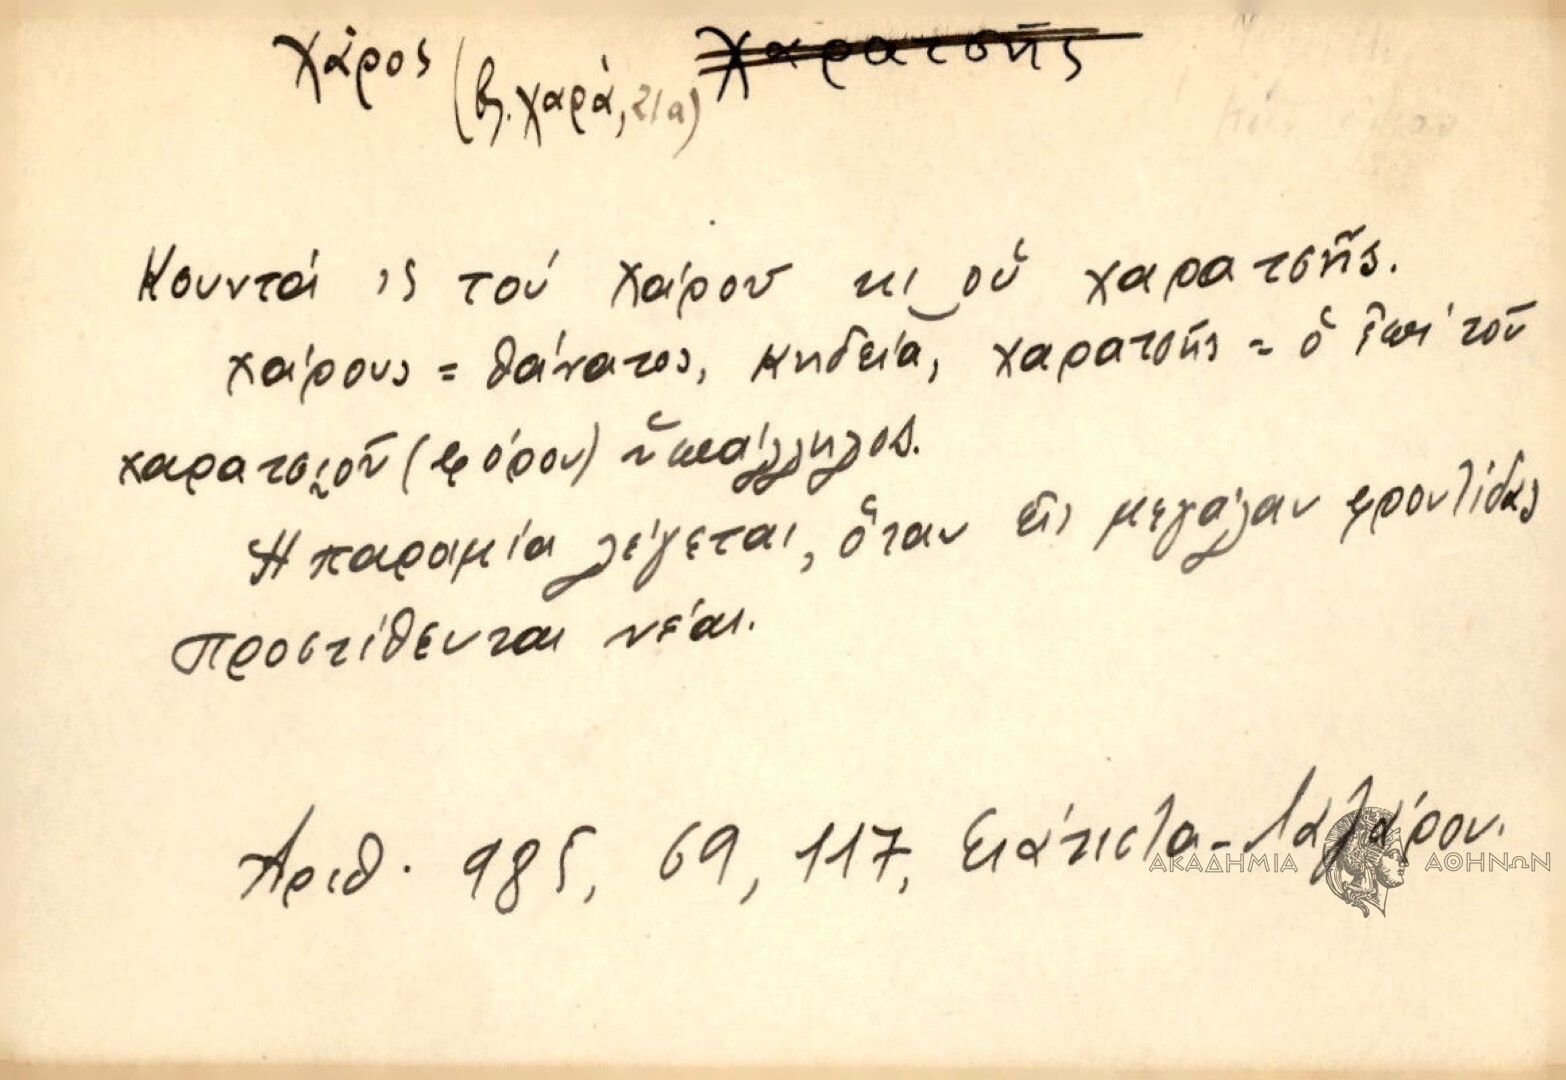 Χάρος (βλ. χαρά, 21α) Χαρατσῆς
Κουντά 'ς τού χάρου κι οὑ χαρατσῆς.
χάρους = θάνατος, κηδεία, χαρατσῆς = ὁ ἐπί τοῦ
χαρατσιοῦ (φόρου) ὑπάλληλος.
Ἡ παροιμία λέγεται, ὅταν εἰς μεγάλαν φροντίδας
προστίθενται νέαι.
Ἀριθ. 985, 69, 117, Σιάτιστα - Λαζάρου.
ΑΚΑΔΗΜΙΑ ΑΘΗΝΩΝ